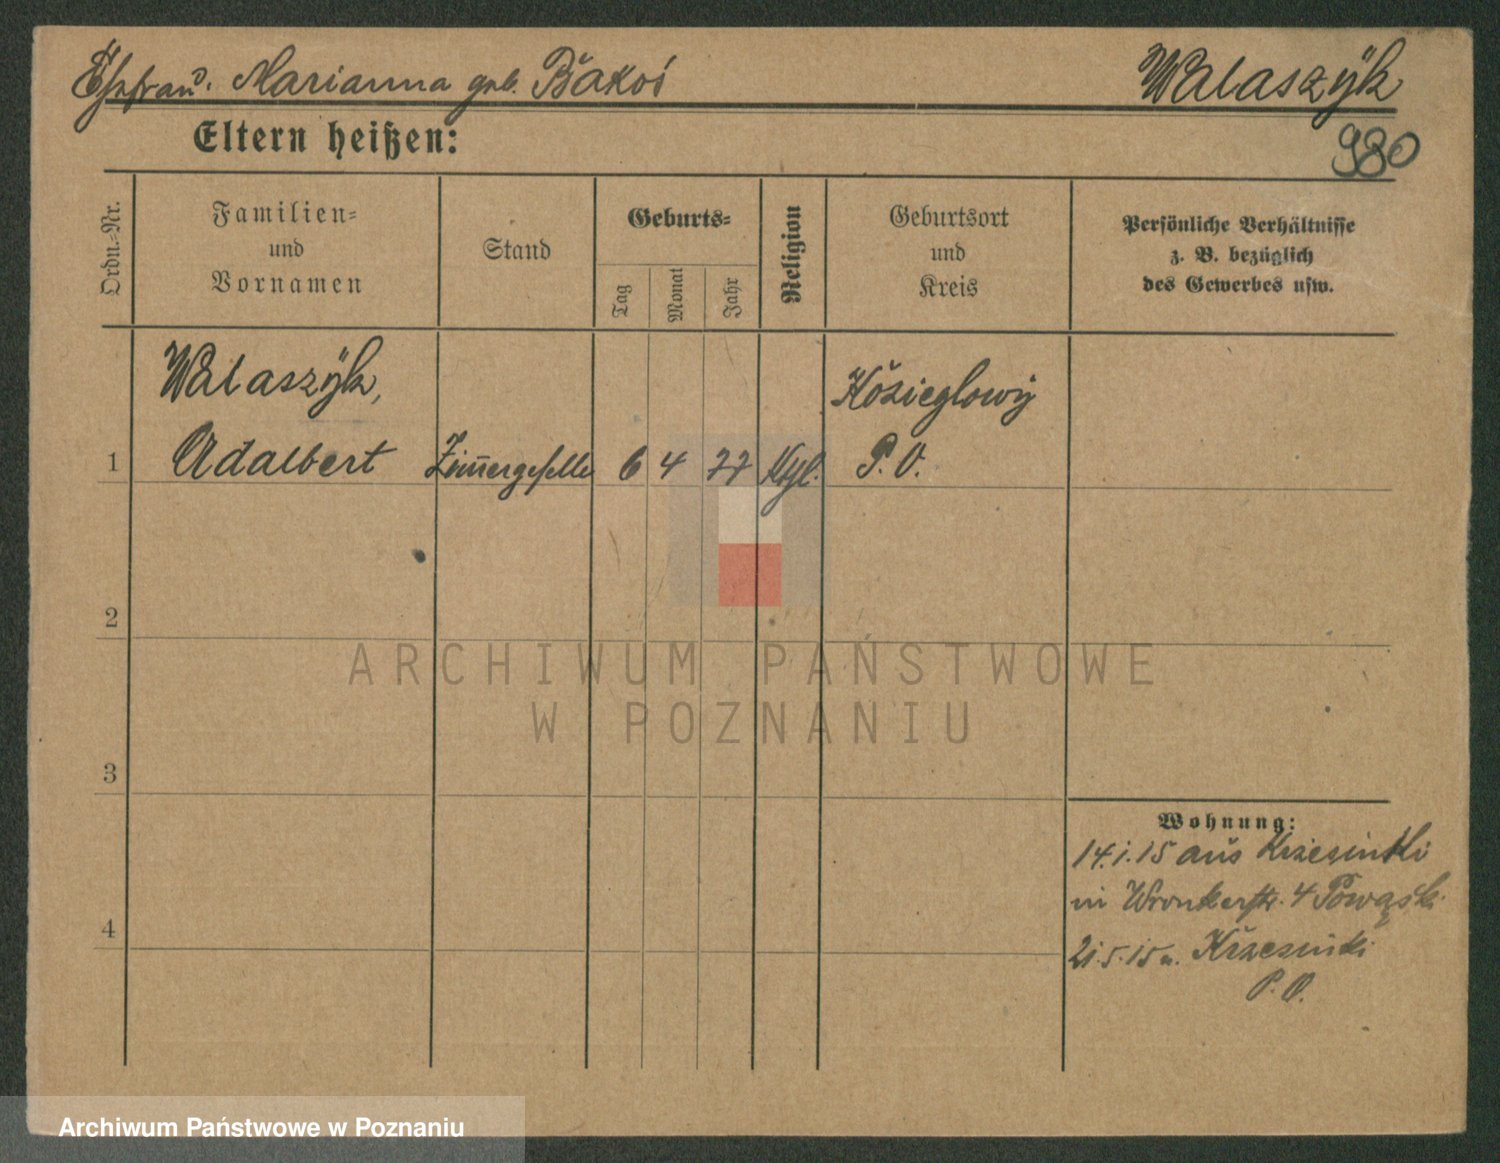 Ehefrau. Marianna geb. Bakoś
Walaszÿk
980
Eltern heißen:
Ordn.-Nr.
Familien-
und
Vornamen
Stand
Geburts-
Tag
Monat
Jahr
Religion
Geburtsort
und
Kreis
Persönliche Verhältnisse
z. B. bezüglich
des Gewerbes usw.
Walaszÿk,
Kozieglowÿ
1 Adalbert Zimmergeselle 6 4 77 Kthl. P. O.
2
3
4
Wohnung:
14.1.15 aus Krzesinki
in Wronkerstr. 4 Powąski
21.5.15 n. Krzesinki
P. O.
ARCHIWUM PAŃSTWOWE
W POZNANIU
Archiwum Państwowe w Poznaniu